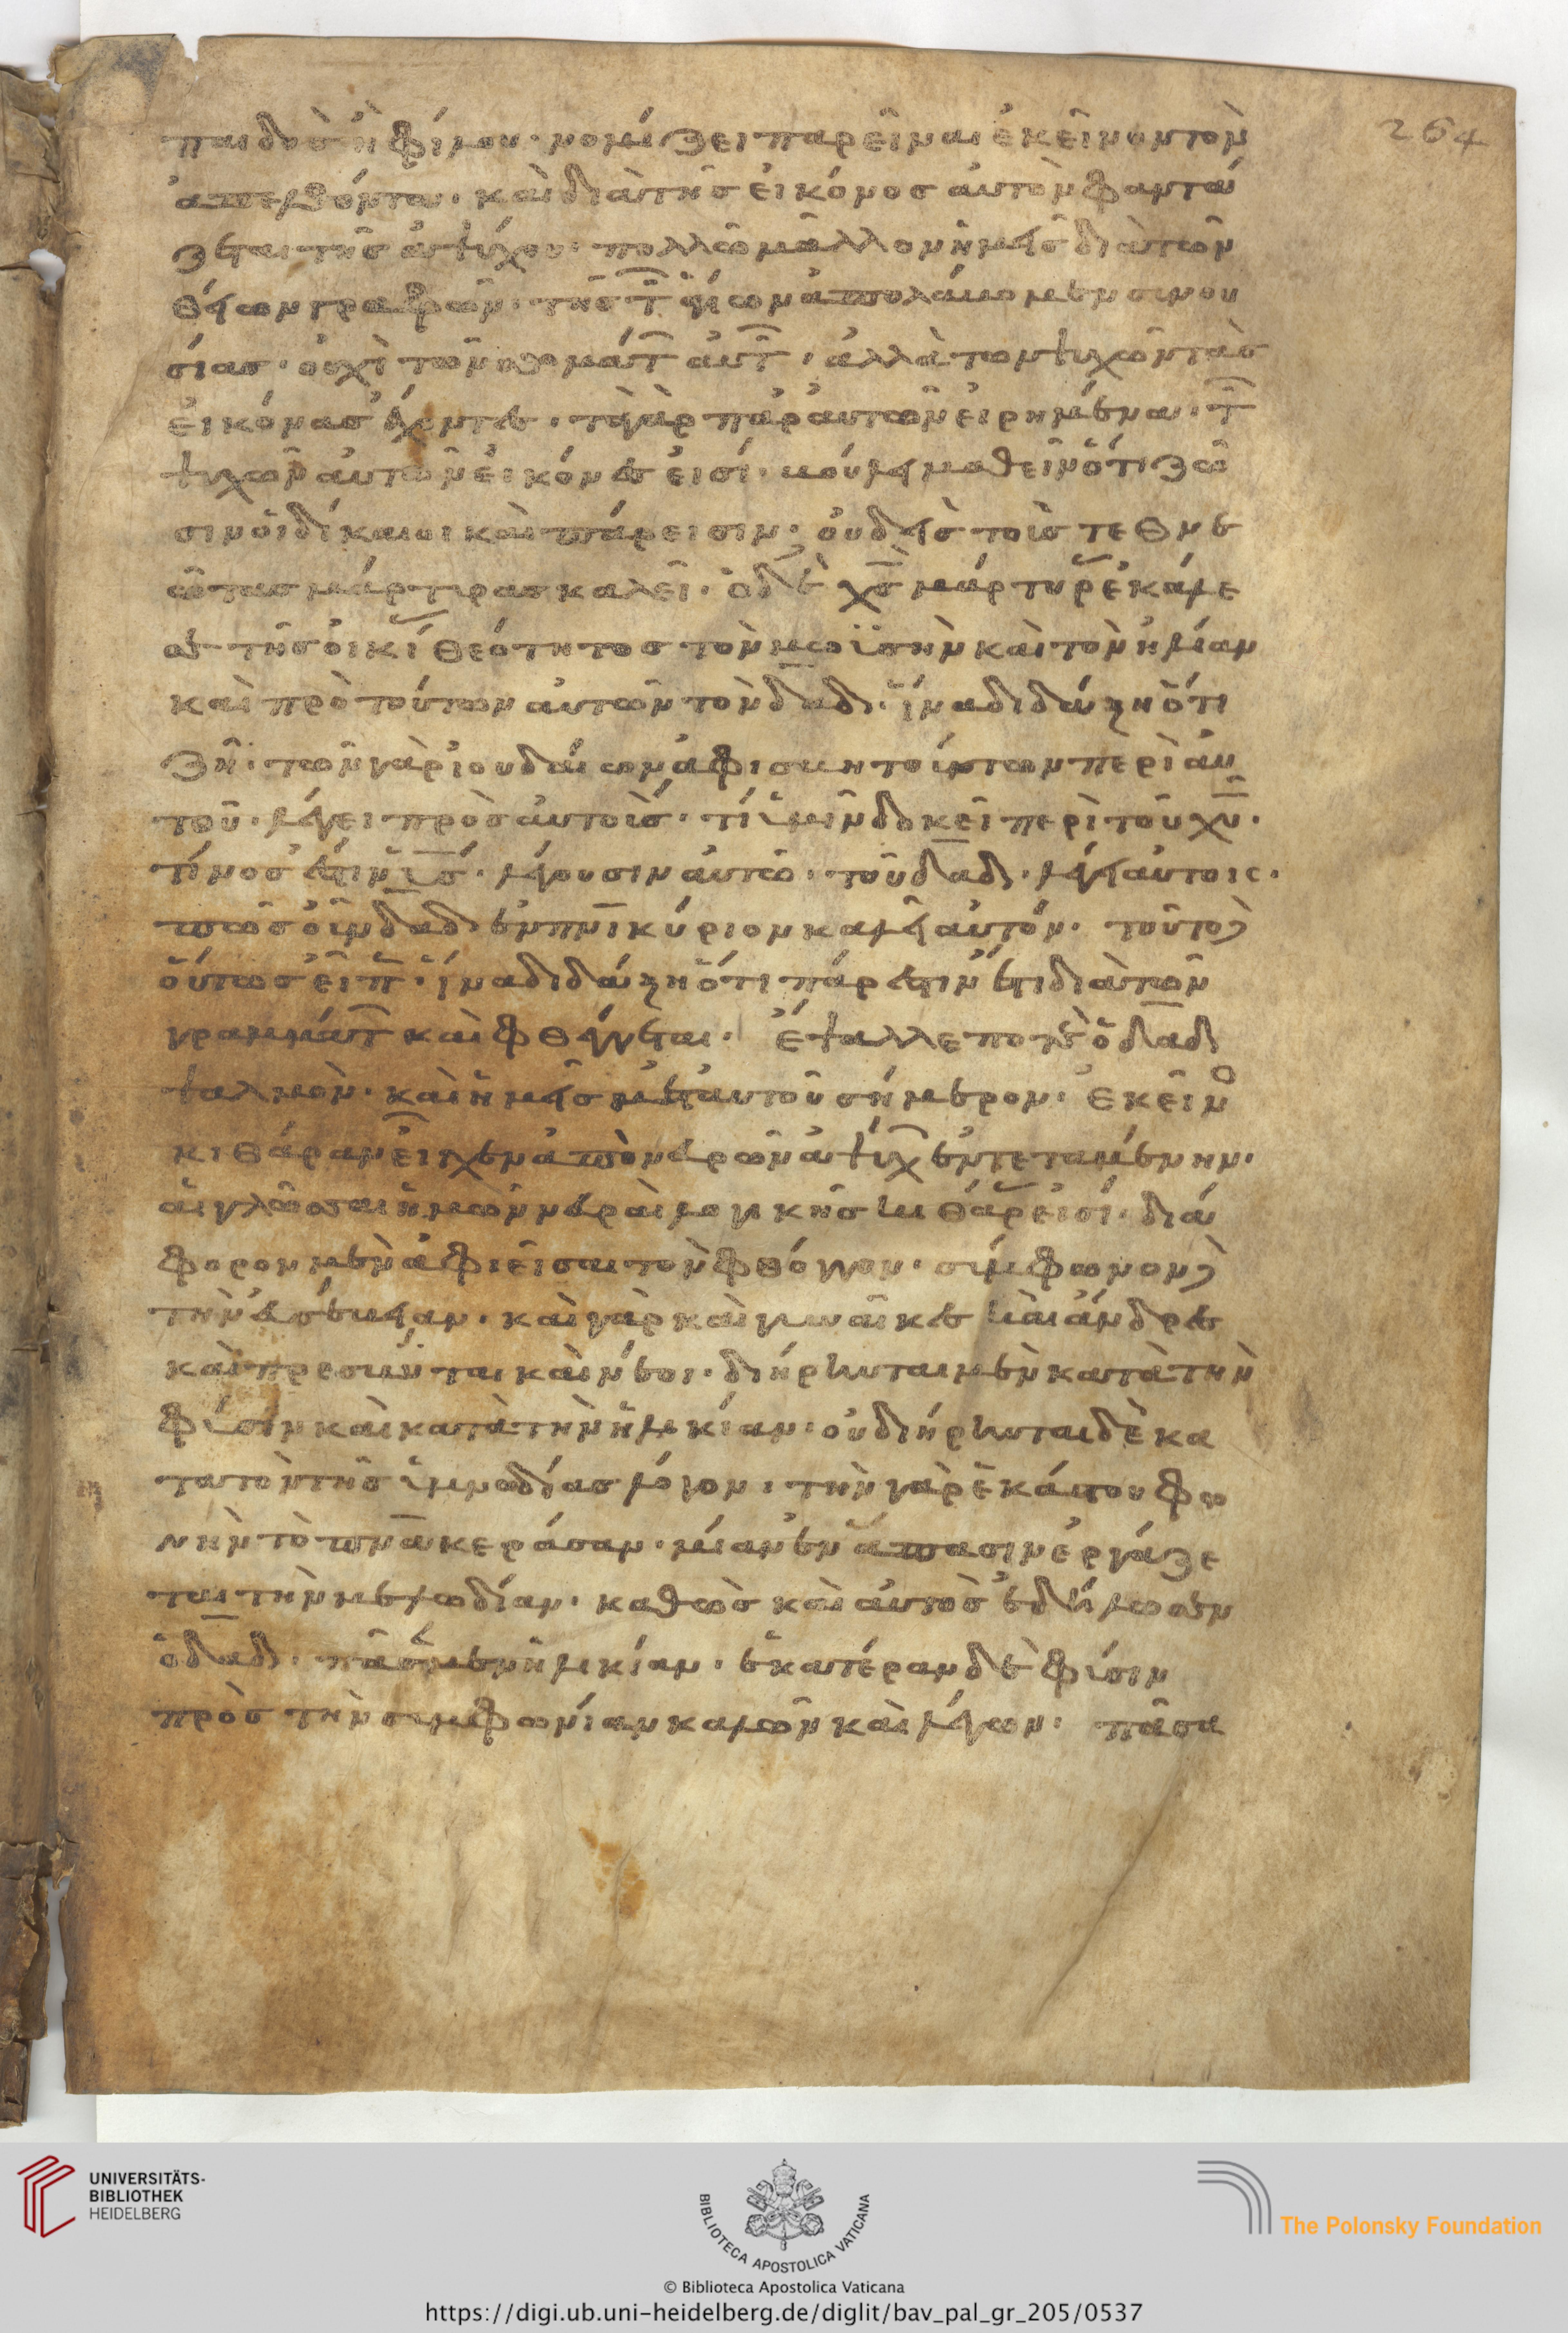 264
παιδὸς ἢ φίλου· νομίζει παρεῖναι ἐκεῖνον τὸν
ἀπελθόντα· καὶ διὰ τῆς εἰκόνος αὐτὸν φαντά
ζεται τῆς ἀψύχου· πολλῶ μᾶλλον ἡμεῖς διὰ τῶν
θείων γραφῶν· τῆς τ̑ ἁγίων ἀπολάυομεν συνου
σίας· οὐχὶ τῶν σωμάτ̑ αὐτ̑, ἀλλὰ τῶν ψυχῶν τὰς
εἰκόνας ἔχοντες· τὰ γὰρ παρ' αὐτῶν εἰρημένα· τ̑
ψυχῶν αὐτῶν εἰκόνες εἰσί· βούλει μαθεῖν ὅτι ζῶ
σιν ὁι δίκαιοι καὶ πάρεισιν· οὐδεὶς τοὺς τεθνε
ῶτας μάρτυρας καλεῖ· ὁ δὲ χς̅ μάρτυρ̑ ἐκάλε
σε τῆς οἰκεί θεότητος τὸν μωϋσῆν καὶ τὸν ἠλίαν
καὶ πρὸ τούτων αὐτῶν τὸν δ̅α̅δ̅· ἵνα διδάξη ὅτι
ζῆ· τῶν γὰρ ἰουδαίων ἀμφισβητούντων περὶ αὐ
τοῦ· λέγει πρὸς αὐτοὺς· τί ὑμῖν δοκεῖ περὶ τοῦ χ̅υ̅·
τίνος ἐστιν υ̅ς̅· λέγουσιν αὐτῶ· τοῦ δ̅α̅δ̅· λέγει αὐτοις·
πῶς οὖν δ̅α̅δ̅ ἐν π̅ν̅ι̅ κύριον καλεῖ αὐτόν· τοῦτο δὲ
οὕτως εἶπ̑· ἵνα διδάξη ὅτι πάρεστιν ἔτι διὰ τῶν
γραμμάτ̑ καὶ φθέγγεται· Ἔψαλλε ποτὲ ὁ δ̅α̅δ̅
ψαλμὸν· καὶ ἡμεῖς μετ' αὐτοῦ σήμερον· ἐκεῖνο
κιθάραν εἶχεν ἀπὸ νευρῶν ἀψύχ̑ ἐντεταμένην·
αἱ γλῶσσαι ἡμῶν νευραὶ λογικῆς κιθάρ̑ εἰσί· διά
φορον μὲν ἀφιεῖσαι τὸν φθόγγον· σύμφωνον δὲ
τὴν εὐσέβειαν· καὶ γὰρ καὶ γυναῖκες καὶ ἄνδρες
καὶ πρεσβῦται καὶ νέοι· διήρηνται μὲν κατὰ τὴν
φύσιν καὶ κατὰ τὴν ἡλικίαν· οὐ διήρηνται δὲ κα
τα τὸν τῆς ὑμνωδίας λόγον· τὴν γὰρ ἑκάστου φω
νὴν τὸ π̅ν̅α̅ κεράσαν· μίαν ἐν ἅπασιν ἐργάζε
ται τὴν μελωδίαν· καθὼς καὶ αὐτὸς ἐδήλωσεν
ὁ δ̅α̅δ̅· πᾶσαν μὲν ἡλικίαν· ἑκατέραν δὲ φύσιν
πρὸς τὴν συμφωνίαν καλῶν καὶ λέγων· πᾶσα
UNIVERSITÄTS-
BIBLIOTHEK
HEIDELBERG
BIBLIOTECA APOSTOLICA VATICANA
The Polonsky Foundation
© Biblioteca Apostolica Vaticana
https://digi.ub.uni-heidelberg.de/diglit/bav_pal_gr_205/0537